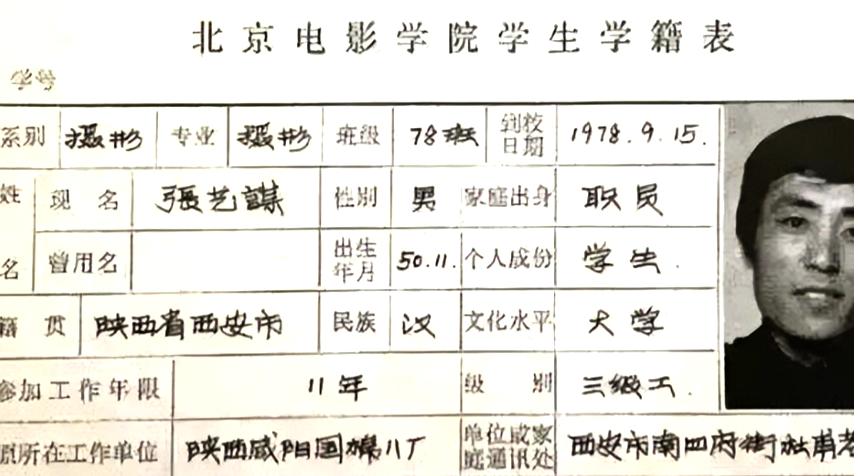 北京电影学院学生学籍表
学号
系别 摄影 专业 摄影 班级 78班 到校日期 1978.9.15.
姓名 现名 張艺謀 性别 男 家庭出身 职员
曾用名 出生年月 50.11. 个人成份 学生.
籍贯 陕西省西安市 民族 汉 文化水平 大学
参加工作年限 11年 级别 三级工.
原所在工作单位 陕西咸阳国棉八厂 单位或家庭通讯处 西安市南四府街杜甫巷